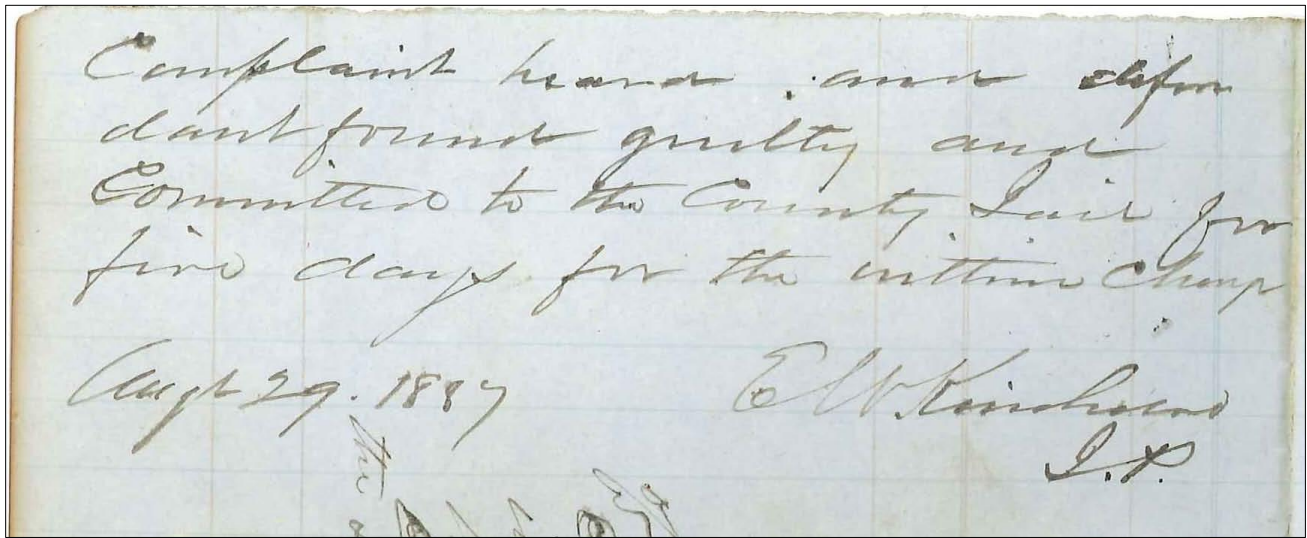 Complaint heard and defen
dant found guilty and
Committed to the County Jail for
five days for the within Charge
Augt 29. 1887
E W
J.P.
the